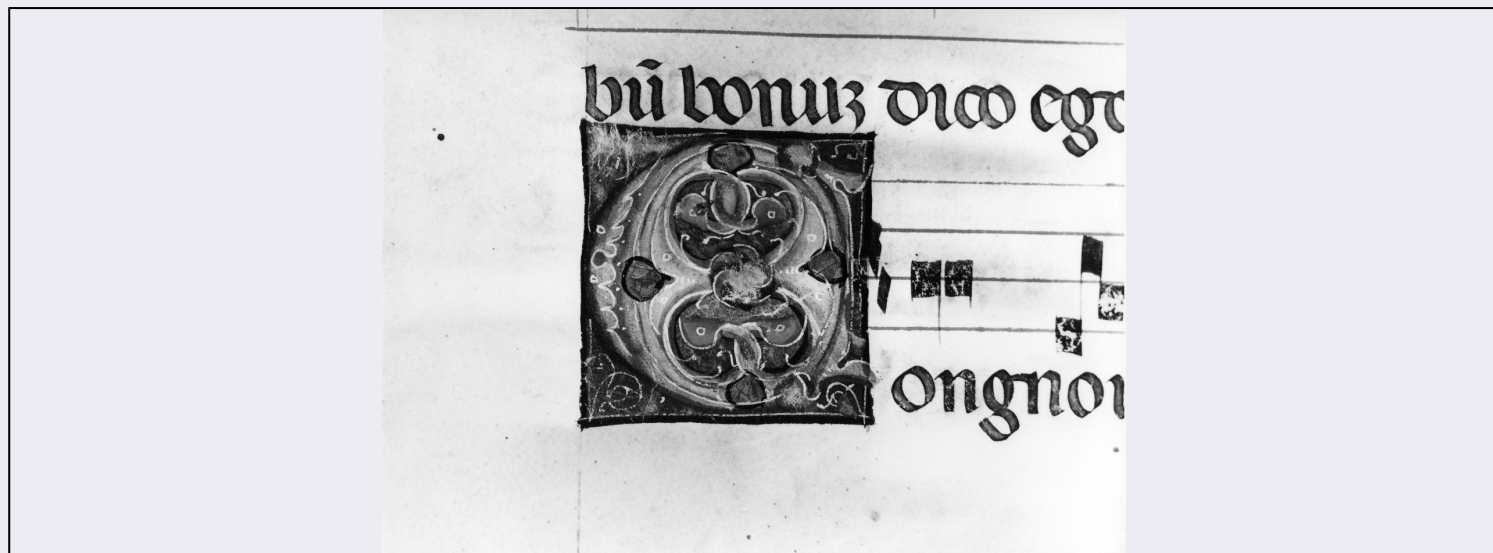 bū bonuz dico ego
Congno